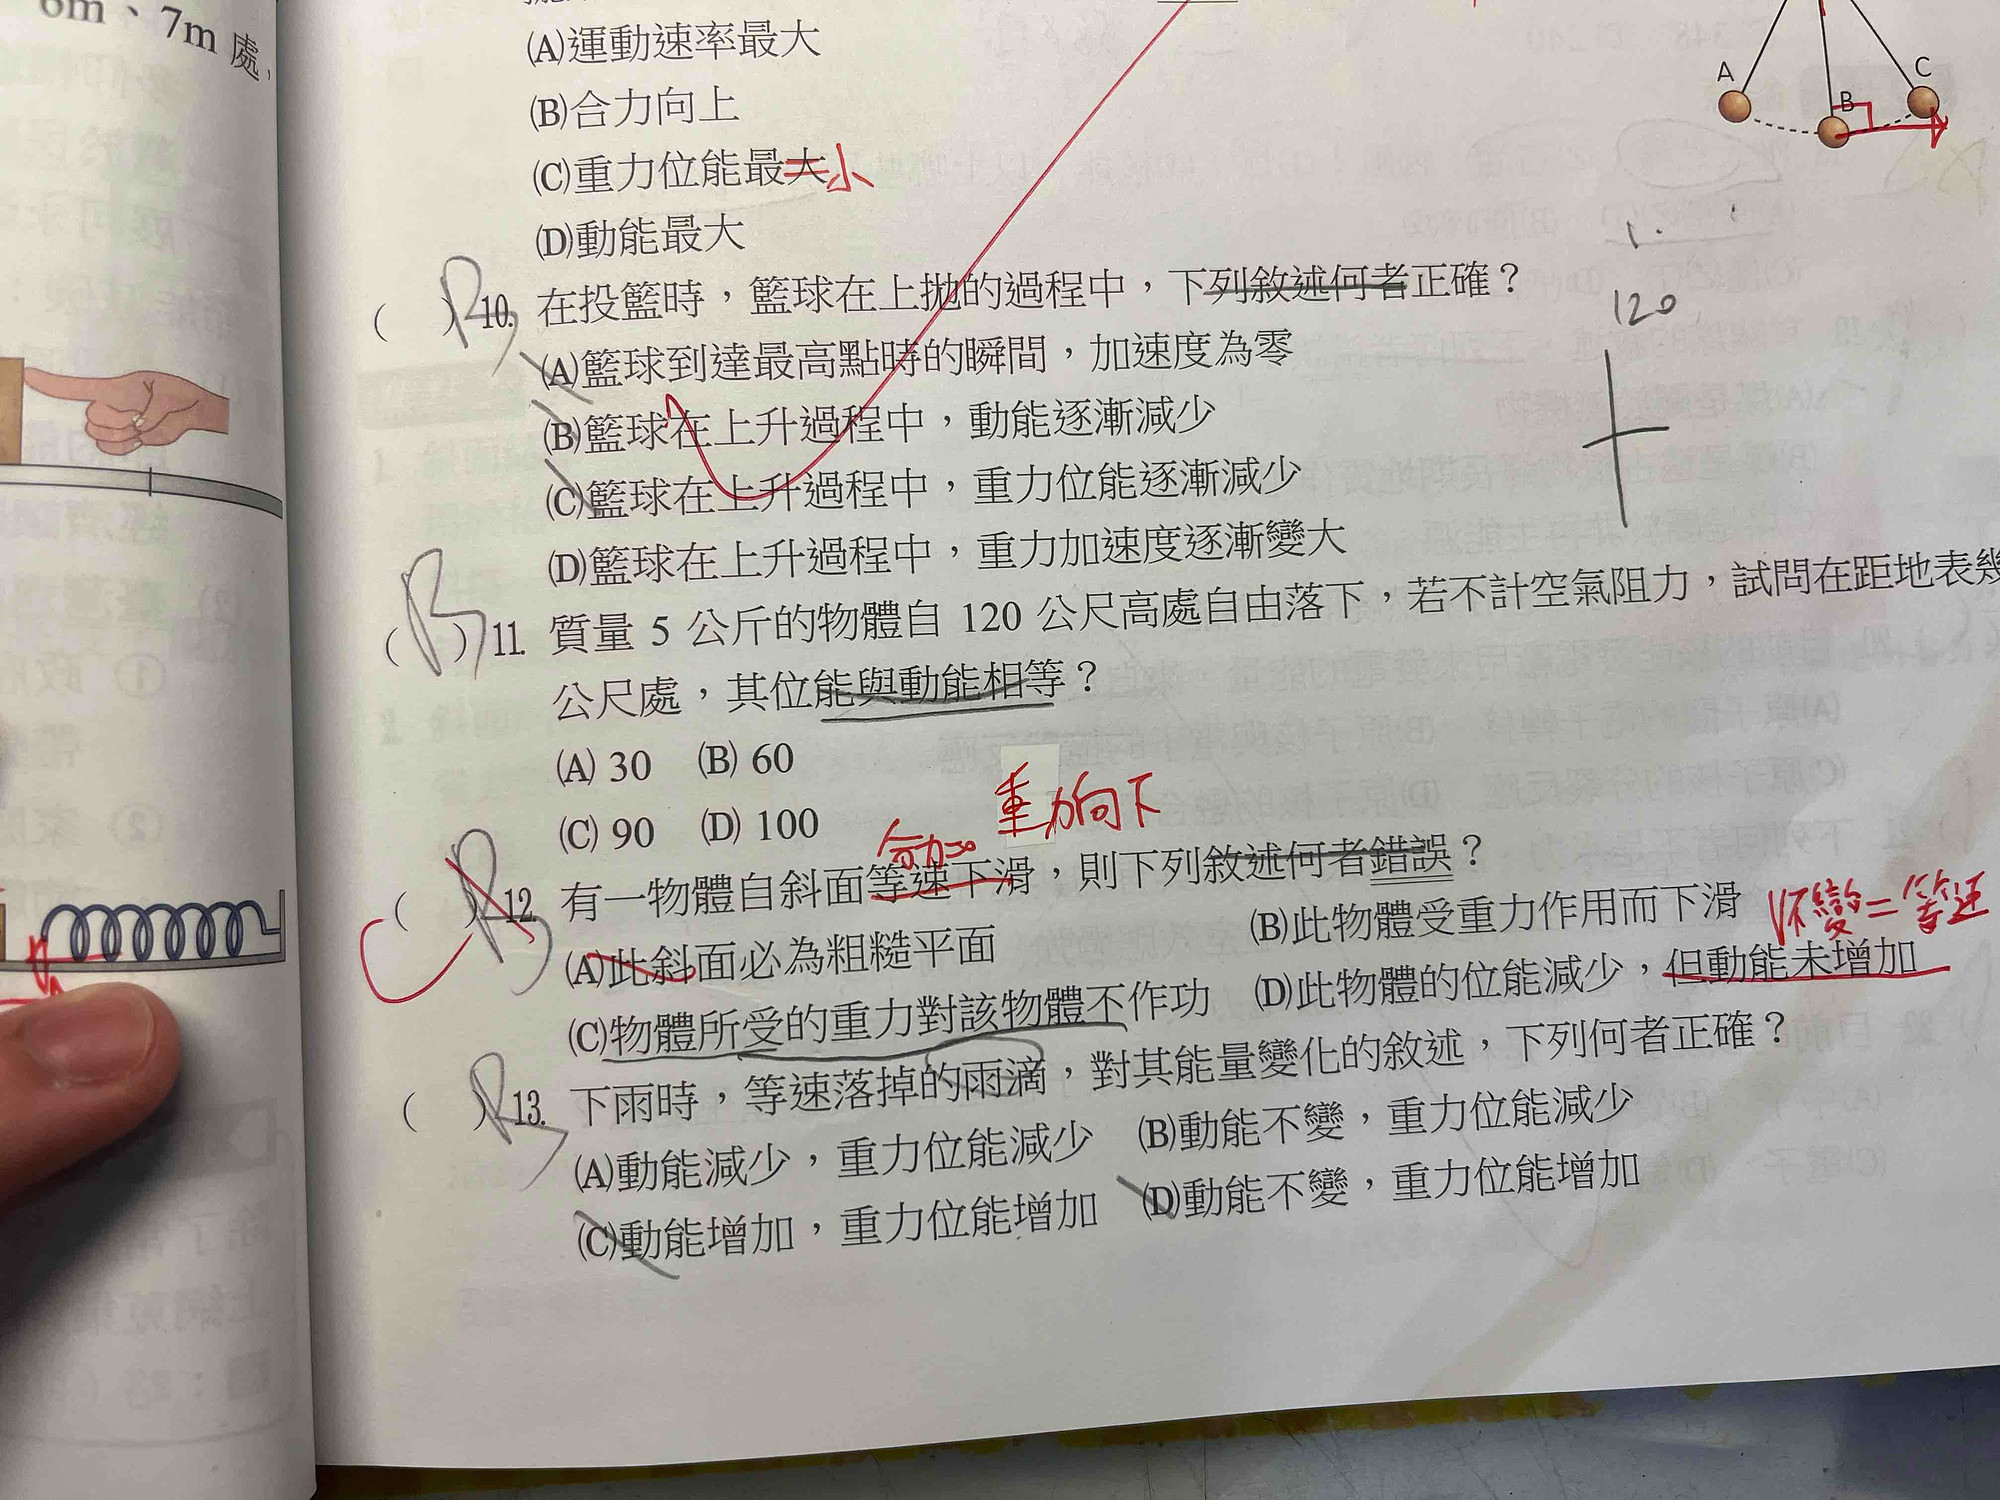 6m、7m 處，
(A)運動速率最大
(B)合力向上
(C)重力位能最大 小
(D)動能最大
A
B
C
( B ) 10. 在投籃時，籃球在上拋的過程中，下列敘述何者正確？
(A)籃球到達最高點時的瞬間，加速度為零
(B)籃球在上升過程中，動能逐漸減少
(C)籃球在上升過程中，重力位能逐漸減少
(D)籃球在上升過程中，重力加速度逐漸變大
120
( B ) 11. 質量 5 公斤的物體自 120 公尺高處自由落下，若不計空氣阻力，試問在距地表幾
公尺處，其位能與動能相等？
(A) 30 (B) 60
(C) 90 (D) 100
合力=0 重力向下
C ( B ) 12. 有一物體自斜面等速下滑，則下列敘述何者錯誤？
(A)此斜面必為粗糙平面 (B)此物體受重力作用而下滑
V不變=等速
(C)物體所受的重力對該物體不作功 (D)此物體的位能減少，但動能未增加
( B ) 13. 下雨時，等速落掉的雨滴，對其能量變化的敘述，下列何者正確？
(A)動能減少，重力位能減少 (B)動能不變，重力位能減少
(C)動能增加，重力位能增加 (D)動能不變，重力位能增加